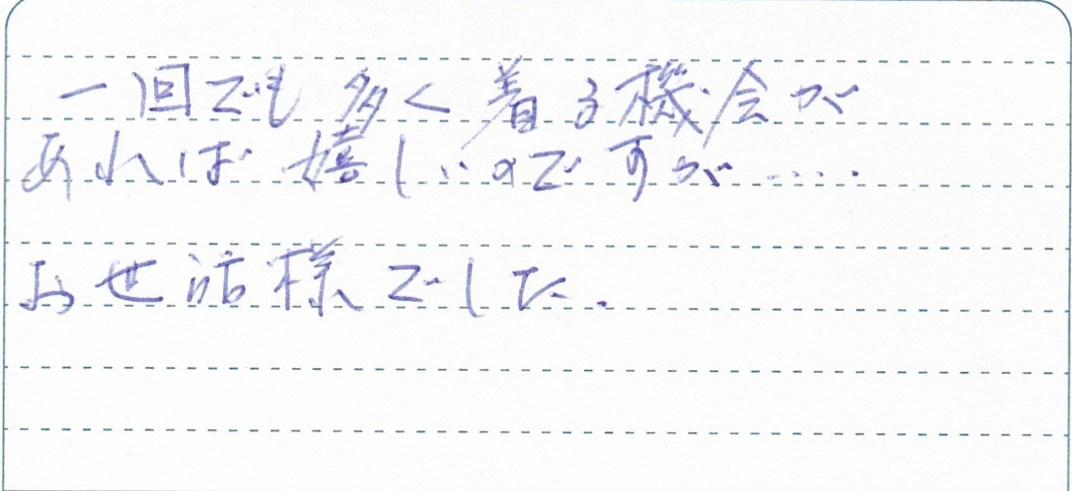 一回でも多く着る機会が
あれば嬉しいのですが.....
お世話様でした.